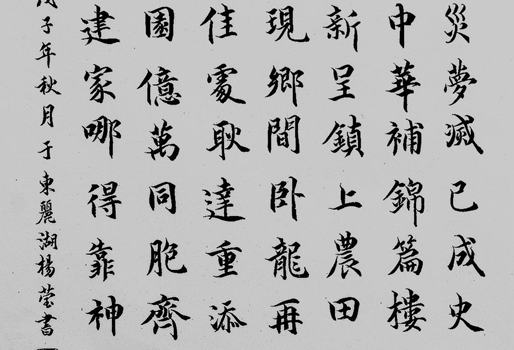 災夢滅已成史
中華補錦篇樓
新呈鎮上農田
現鄉間卧龍再
佳處耿達重添
園億萬同胞齊
建家哪得靠神
戊子年秋月于東麗湖楊瑩書